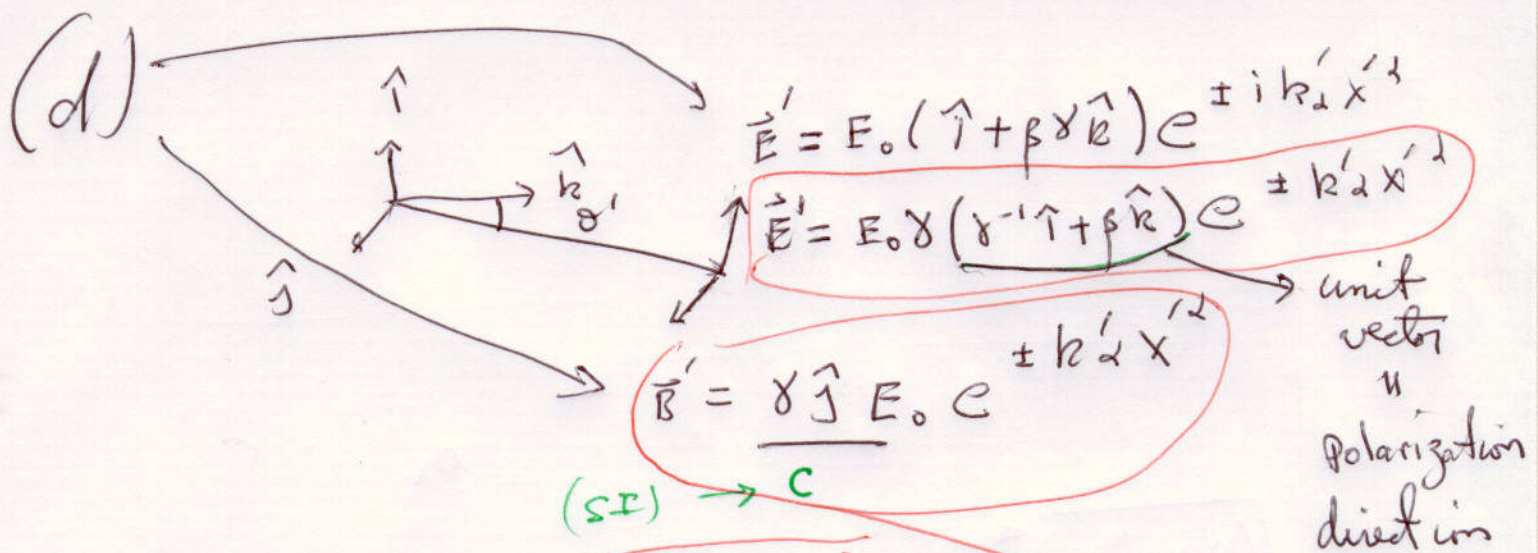 (d)
î
k̂
θ'
ĵ
E⃗' = E₀ (î + βγ k̂) e^{± i k'_α x'^α}
E⃗' = E₀ γ (γ⁻¹ î + β k̂) e^{± k'_α x'^α}
unit
vector
"
polarization
direction
B⃗' = γ ĵ E₀ e^{± k'_α x'^α}
(SI) → c